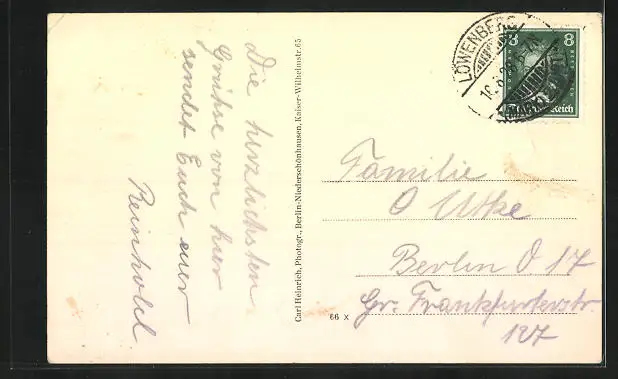 Die herzlichsten
Grühse von hier
sendet Euch euer
Reinhold
Carl Heinrich, Photogr., Berlin-Niederschönhausen, Kaiser-Wilhelmstr. 65
66 x
LÖWENBERG
8 8
Reich
Familie
O Utke
Berlin O 17
Gr. Frankfurterstr.
127